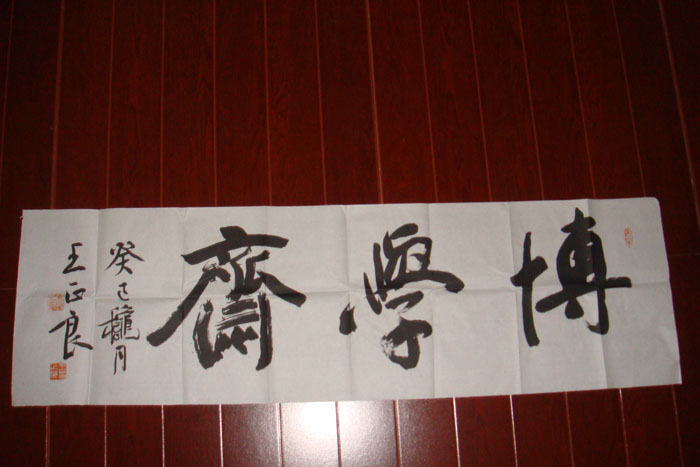 博學齋
癸巳龝月
王正良